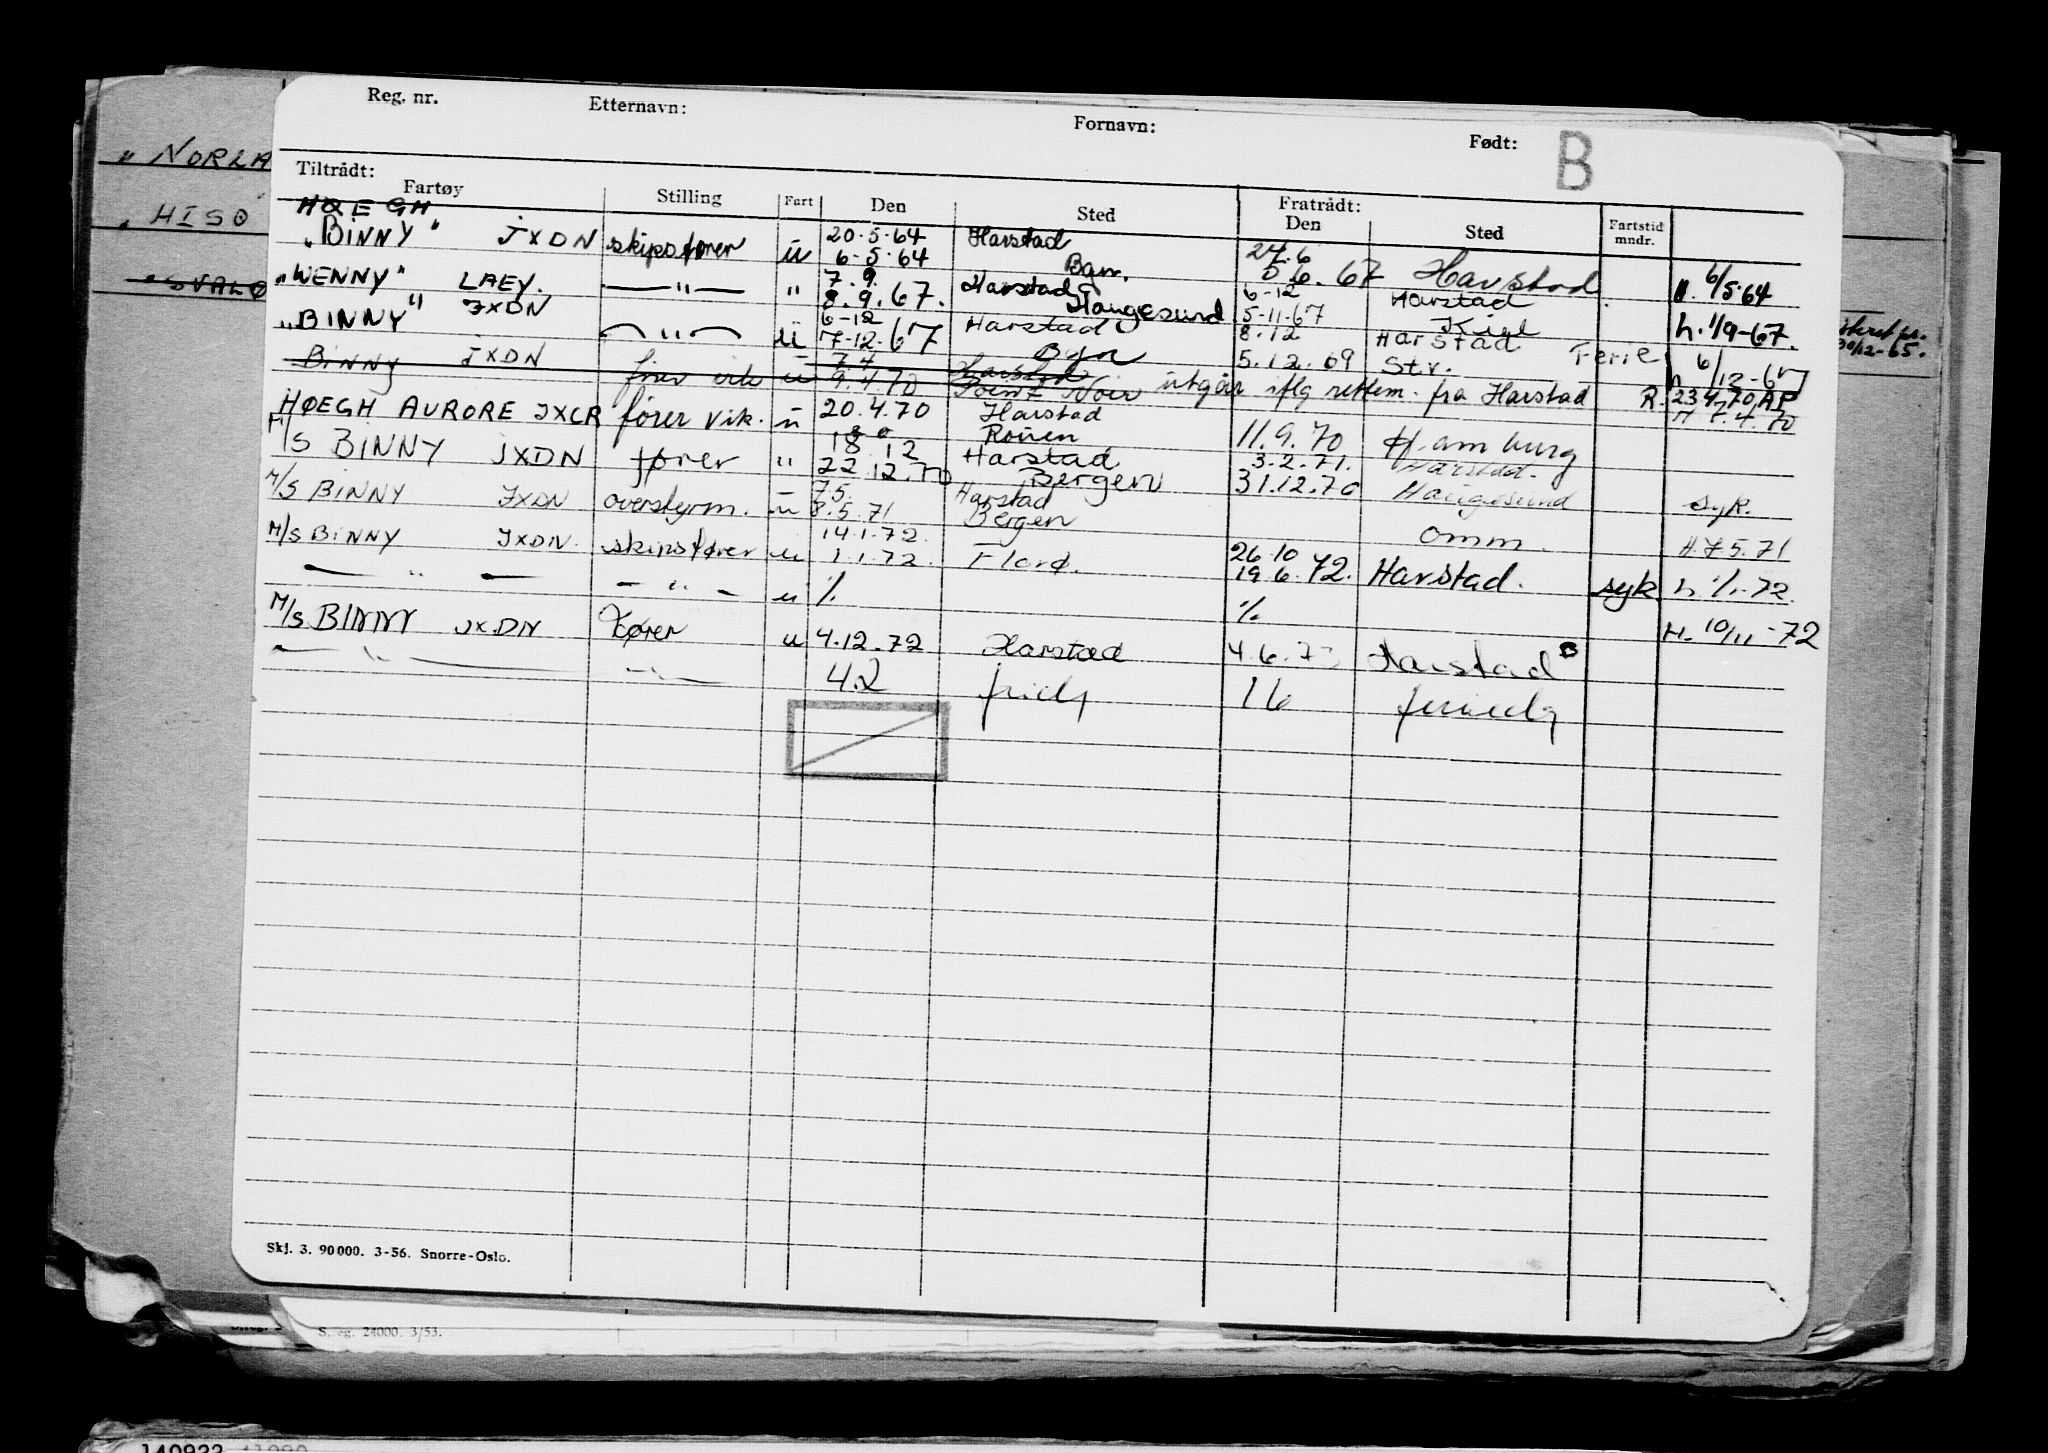 Reg. nr. Etternavn: Fornavn: Født: B
" NORLA
" HISØ
"SVALØ
Tiltrådt: Fratrådt:
Fartøy Stilling Fart Den Sted Den Sted Fartstid mndr.
HØEGH
"BINNY" JXDN skipsfører u 20.5.64 Harstad 24.6
6.5.64 6.67 Harstad 6/5.64
"WENNY" LAEY. — " — " 7.9. Harstad 6-12 Harstad
8.9.67. Haugesund 5-11-67 Kiel h. 1/9-67.
"BINNY" JXDN — " — u 6-12 Harstad 8.12 Harstad Ferie
7-12.67 5.12.69 Str. 6/12-67
Binny JXDN fører vik u 7.4 Harstad
9.4.70 Point Noir utgår iflg rettem. fra Harstad R. 23.4.70 AP
HØEGH AURORE JXCR fører vik. u 20.4.70 Harstad H 7.4.70
Rouen 11.9.70 Hamburg
M/S BINNY JXDN fører " 18 12 Harstad 3.2.71. Harstad.
22.12.70 Bergen 31.12.70 Haugesund syk.
M/S BINNY JXDN overstyrm. u 7.5. Harstad
8.5.71 Bergen omm. H.7.5.71
M/S BINNY JXDN. skipsfører u 14.1.72.
1.1.72. Florø. 26.10
19.6.72. Harstad. syk h. 1/1-72.
— " — — " — u %. %
H. 10/11-72
M/S BINNY JXDN Fører u 4.12.72 Harstad 4.6.7 Harstad
— " — — " — 42 16
Skj. 3. 90000. 3-56. Snorre-Oslo.
S. eg. 24000. 3/53.
30/12-65.
140922